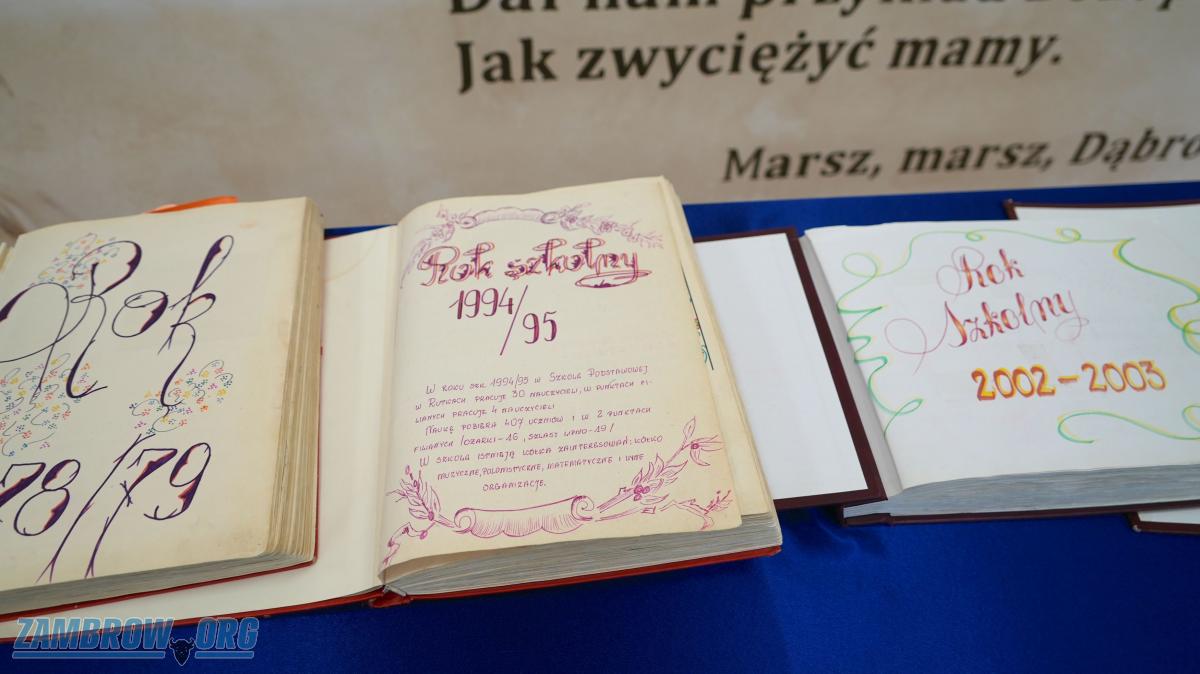 Dał nam przykład
Jak zwyciężyć mamy.
Marsz, marsz, Dąbro
Rok
78/79
Rok szkolny
1994/95
W ROKU SZK. 1994/95 W SZKOLE PODSTAWOWEJ
W RUTKACH PRACUJE 30 NAUCZYCIELI, W PUNKTACH FI-
LIALNYCH PRACUJE 4 NAUCZYCIELI
NAUKĘ POBIERA 407 UCZNIÓW I W 2 PUNKTACH
FILIALNYCH /OŻARKI-16, SZLASY LIPNO-19/
W SZKOLE ISTNIEJĄ KÓŁKA ZAINTERESOWAŃ: KÓŁKO
MUZYCZNE, POLONISTYCZNE, MATEMATYCZNE I INNE
ORGANIZACJE.
Rok
Szkolny
2002-2003
ZAMBROW.ORG